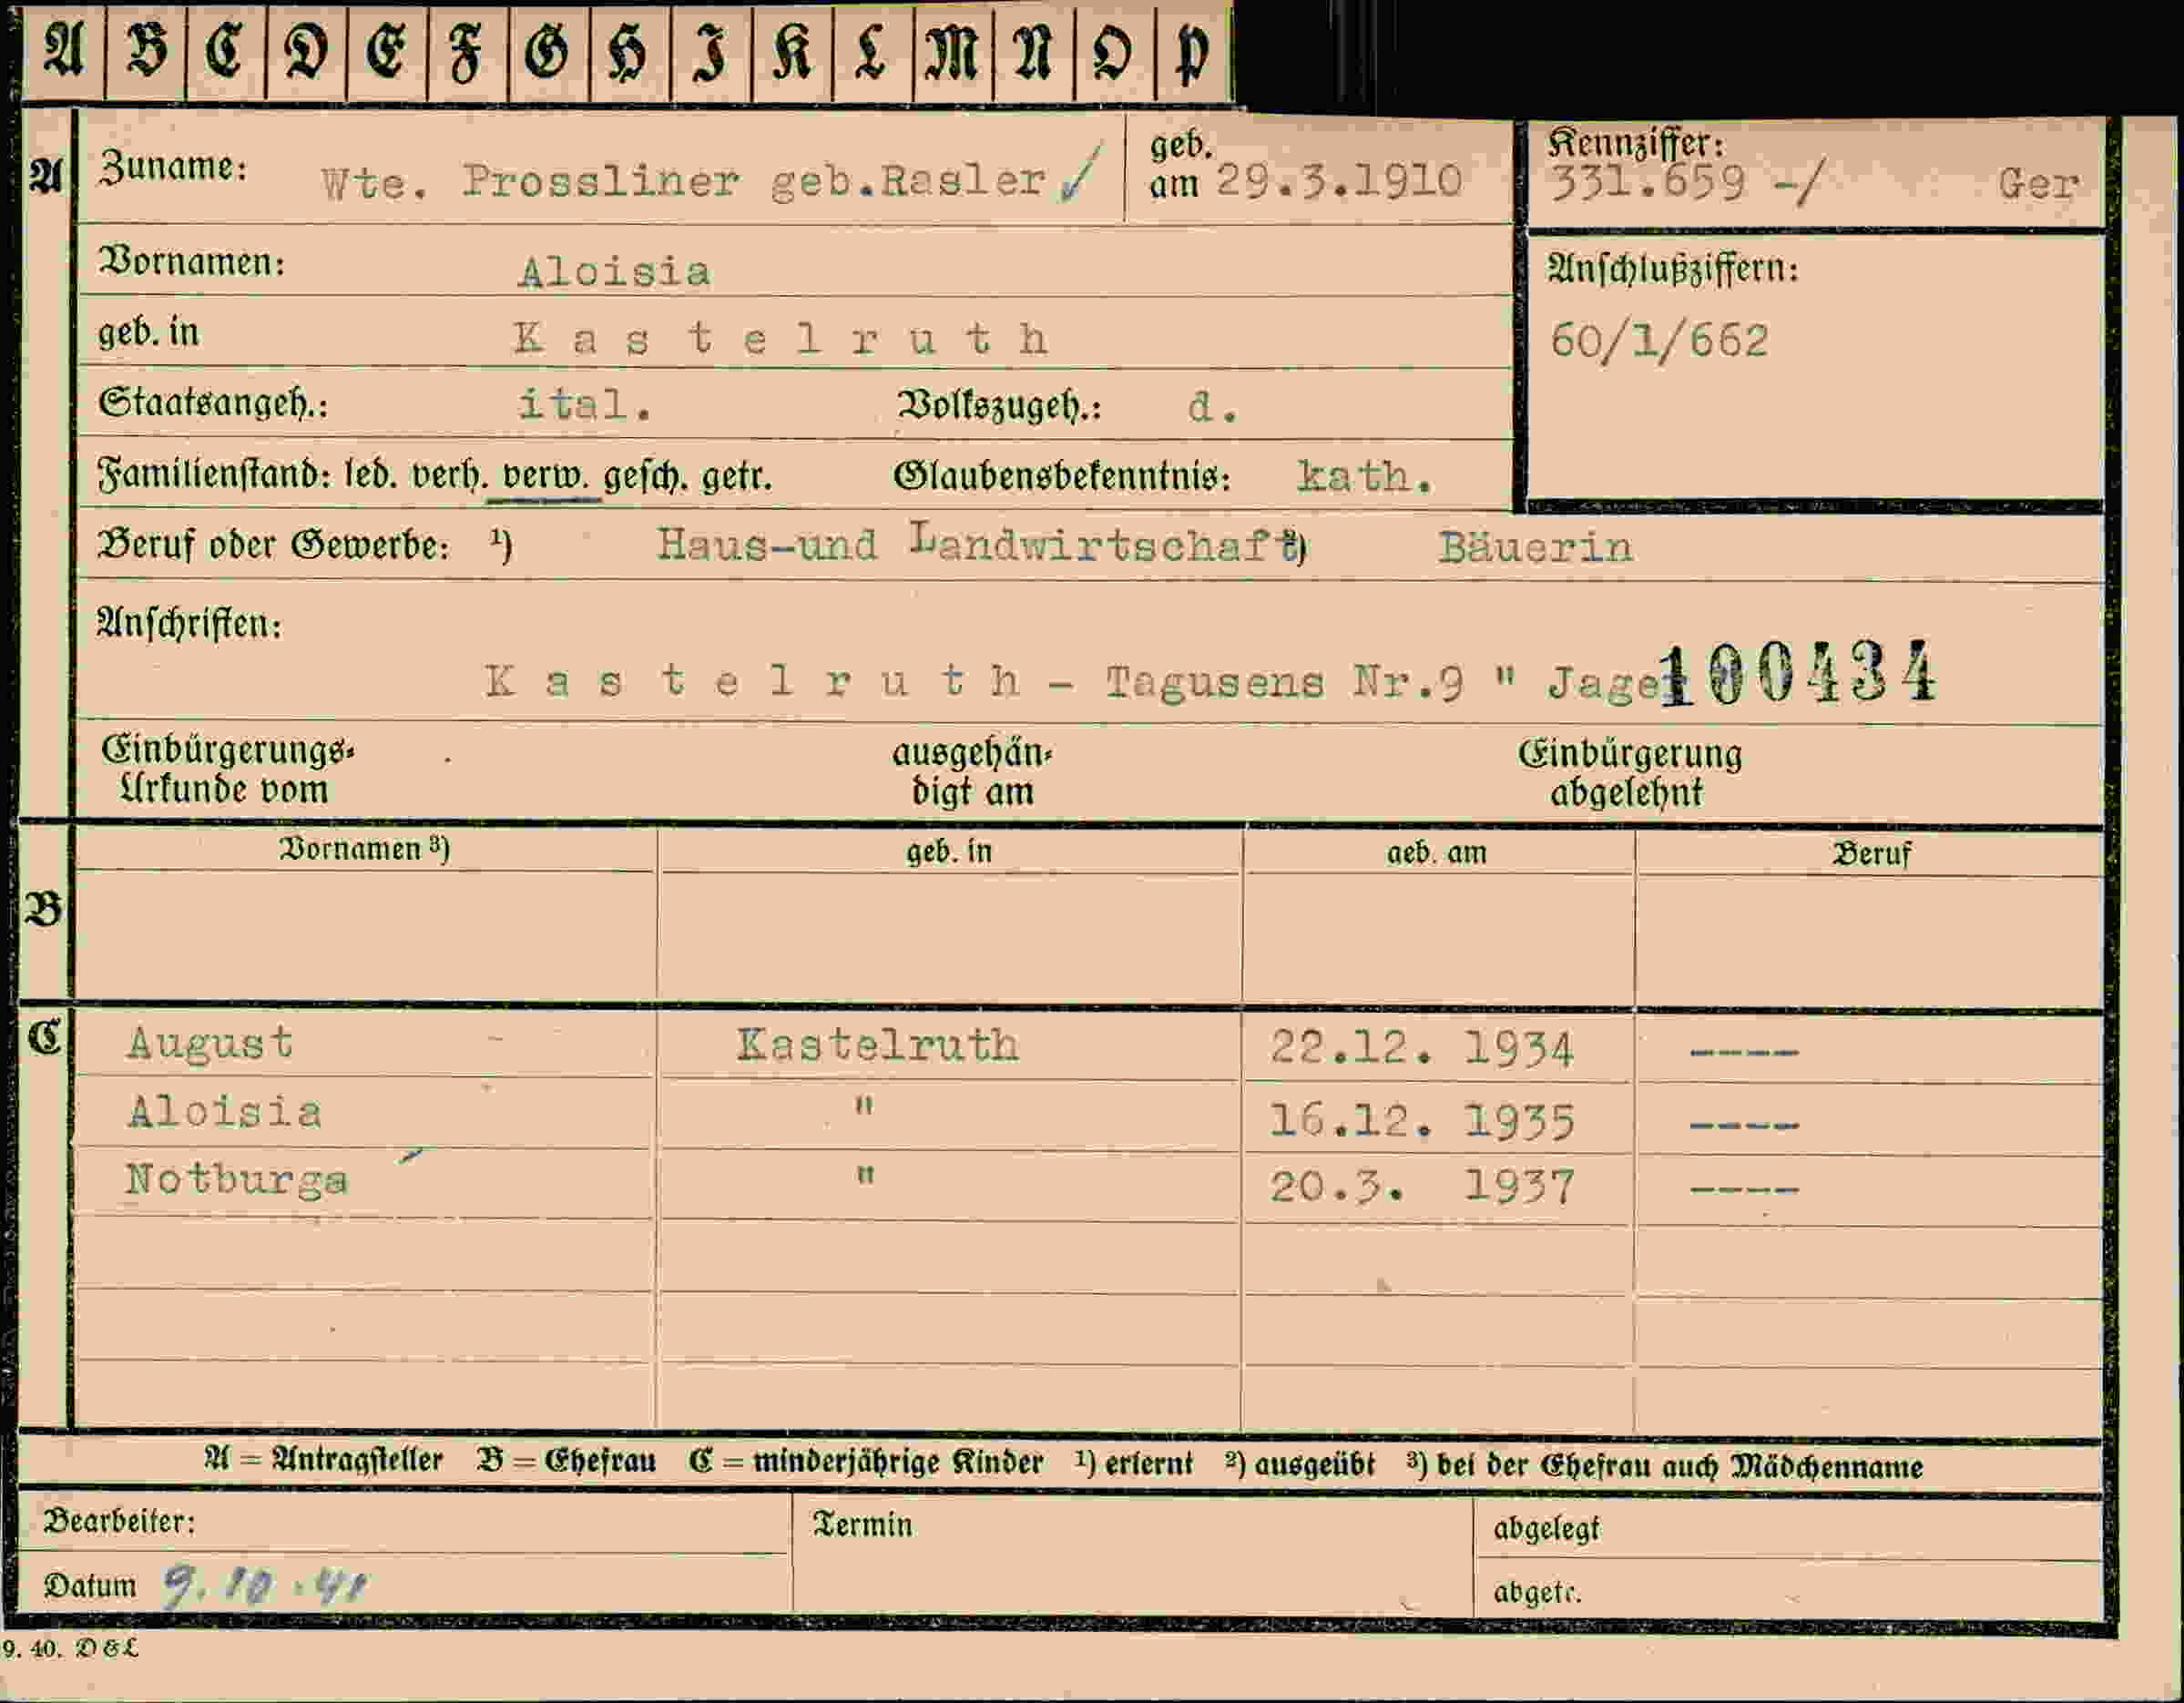 A B C D E F G H I K L M N O P
A Zuname: Wte. Prossliner geb.Rasler geb. am 29.3.1910 Kennziffer: 331.659 -/ Ger
Vornamen: Aloisia Anschlußziffern:
geb. in Kastelruth 60/1/662
Staatsangeh.: ital. Volkszugeh.: d.
Familienstand: led. verh. verw. gesch. getr. Glaubensbekenntnis: kath.
Beruf oder Gewerbe: ¹) Haus-und Landwirtschaft ²) Bäuerin
Anschriften:
Kastelruth - Tagusens Nr.9 " Jager 100434
Einbürgerungs- ausgehän- Einbürgerung
Urkunde vom digt am abgelehnt
Vornamen ³) geb. in geb. am Beruf
B
C August Kastelruth 22.12. 1934 ----
Aloisia " 16.12. 1935 ----
Notburga " 20.3. 1937 ----
A = Antragsteller B = Ehefrau C = minderjährige Kinder ¹) erlernt ²) ausgeübt ³) bei der Ehefrau auch Mädchenname
Bearbeiter: Termin abgelegt
Datum 9.10.41 abgetr.
9. 40. D&L